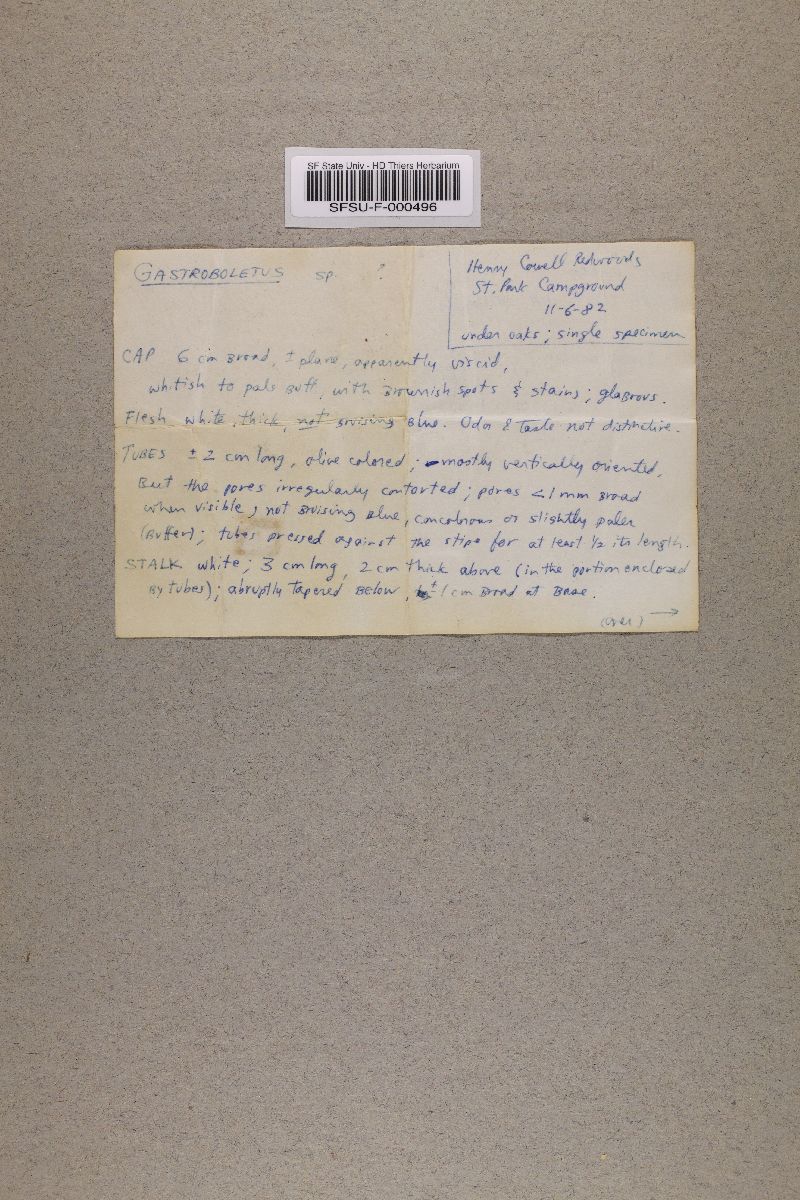 SF State Univ - HD Thiers Herbarium
SFSU-F-000496
GASTROBOLETUS sp. ?
Henry Cowell Redwoods
St. Park Campground
11-6-82
under oaks; single specimen
CAP 6 cm Broad, ± plane, apparently viscid,
whitish to pale Buff, with Brownish spots & stains; glaBrous.
Flesh white, thick, not Bruising Blue. Odor & Taste not distinctive.
TUBES ± 2 cm long, olive colored; mostly vertically oriented,
But the pores irregularly contorted; pores < 1 mm Broad
when visible, not Bruising Blue, concolorous or slightly paler
(Buffer); tubes pressed against the stipe for at least 1/2 its length.
STALK white; 3 cm long, 2 cm thick above (in the portion enclosed
By tubes); abruptly Tapered Below, ± 1 cm Broad at Base.
(over) →